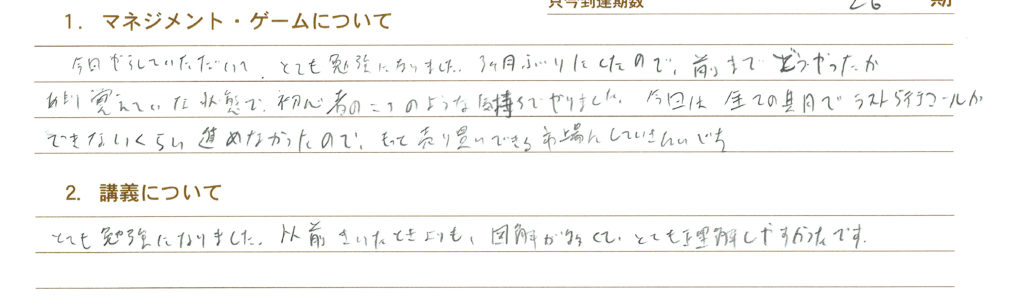 只今到達期数 26 期
1. マネジメント・ゲームについて
今回 していただいて、とても勉強になりました。3ヶ月ぶりにしたので、前までどうやったか
あまり覚えていな状態で、初心者のころのような気持ちでやりました。今回は全ての期でラスト5行コールが
できないくらい進めなかったので、もっと売り買いできる市場にしていきたいです
2. 講義について
とても勉強になりました。以前きいたときよりも、図解が多くて、とても理解しやすかったです。